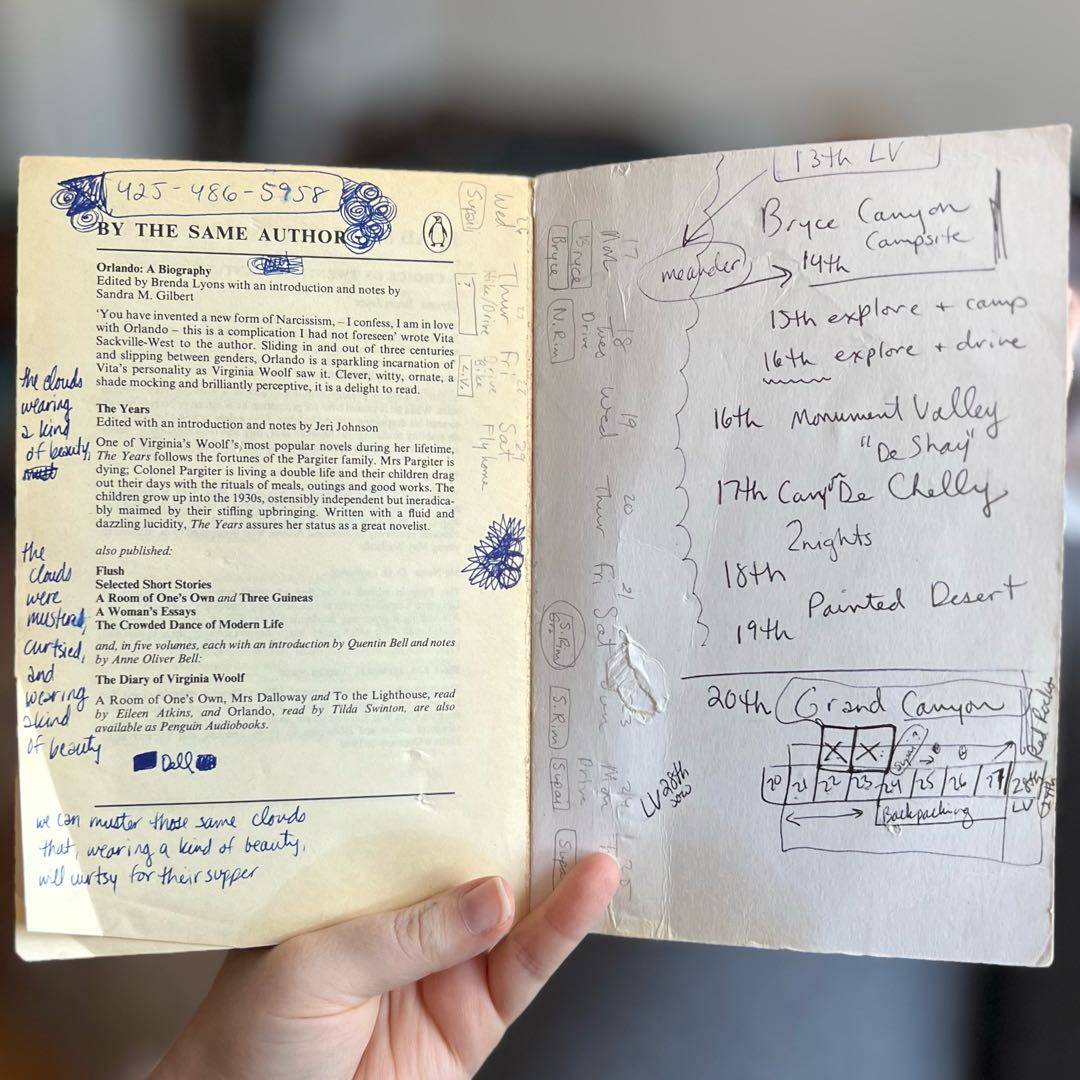 425-486-5958
BY THE SAME AUTHOR
Orlando: A Biography
Edited by Brenda Lyons with an introduction and notes by
Sandra M. Gilbert
'You have invented a new form of Narcissism, – I confess, I am in love
with Orlando – this is a complication I had not foreseen' wrote Vita
Sackville-West to the author. Sliding in and out of three centuries
and slipping between genders, Orlando is a sparkling incarnation of
Vita's personality as Virginia Woolf saw it. Clever, witty, ornate, a
shade mocking and brilliantly perceptive, it is a delight to read.
The Years
Edited with an introduction and notes by Jeri Johnson
One of Virginia's Woolf's most popular novels during her lifetime,
The Years follows the fortunes of the Pargiter family. Mrs Pargiter is
dying; Colonel Pargiter is living a double life and their children drag
out their days with the rituals of meals, outings and good works. The
children grow up into the 1930s, ostensibly independent but ineradica-
bly maimed by their stifling upbringing. Written with a fluid and
dazzling lucidity, The Years assures her status as a great novelist.
also published:
Flush
Selected Short Stories
A Room of One's Own and Three Guineas
A Woman's Essays
The Crowded Dance of Modern Life
and, in five volumes, each with an introduction by Quentin Bell and notes
by Anne Oliver Bell:
The Diary of Virginia Woolf
A Room of One's Own, Mrs Dalloway and To the Lighthouse, read
by Eileen Atkins, and Orlando, read by Tilda Swinton, are also
available as Penguin Audiobooks.
the clouds
wearing
a kind
of beauty,
the
clouds
were
mustered,
curtsied,
and
wearing
a kind
of beauty
Dall
we can muster those same clouds
that, wearing a kind of beauty,
will curtsy for their supper
Wed Thur Fri Sat
Supai
?
Hike/Drive
Drive
Hike
LV
Fly home
17 18 19 20 21
Mon Tues Wed Thur Fri Sat Sun Mon
Bryce
Drive
Drive
Bryce
N. Rim
S. Rim
S. Rim
Supai
Supai
13th LV
Bryce Canyon
Campsite
meander
14th
15th explore + camp
16th explore + drive
16th Monument Valley
"De Shay"
17th Cany De Chelly
2 nights
18th
Painted Desert
19th
20th Grand Canyon
X X
Supai
20 21 22 23 24 25 26 27 28th
LV
Backpacking
Red Rocks
LV 28th